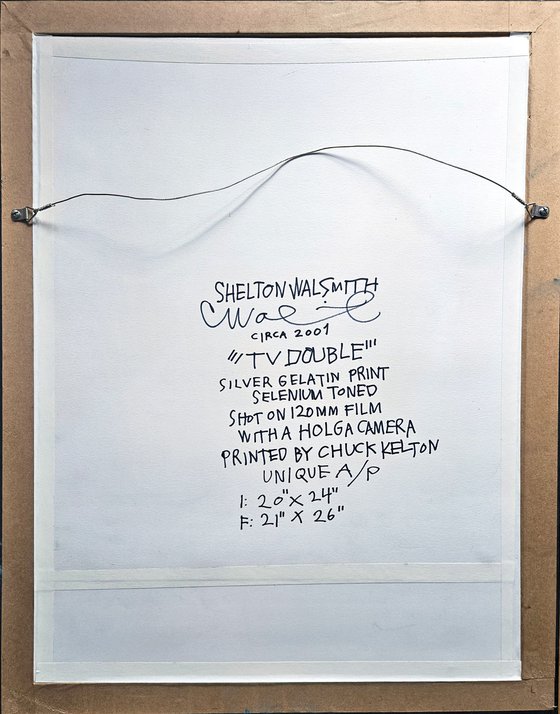 SHELTON WALSMITH
CIRCA 2001
"'TV DOUBLE'"
SILVER GELATIN PRINT
SELENIUM TONED
SHOT ON 120MM FILM
WITH A HOLGA CAMERA
PRINTED BY CHUCK KELTON
UNIQUE A/P
I: 20" X 24"
F: 21" X 26"